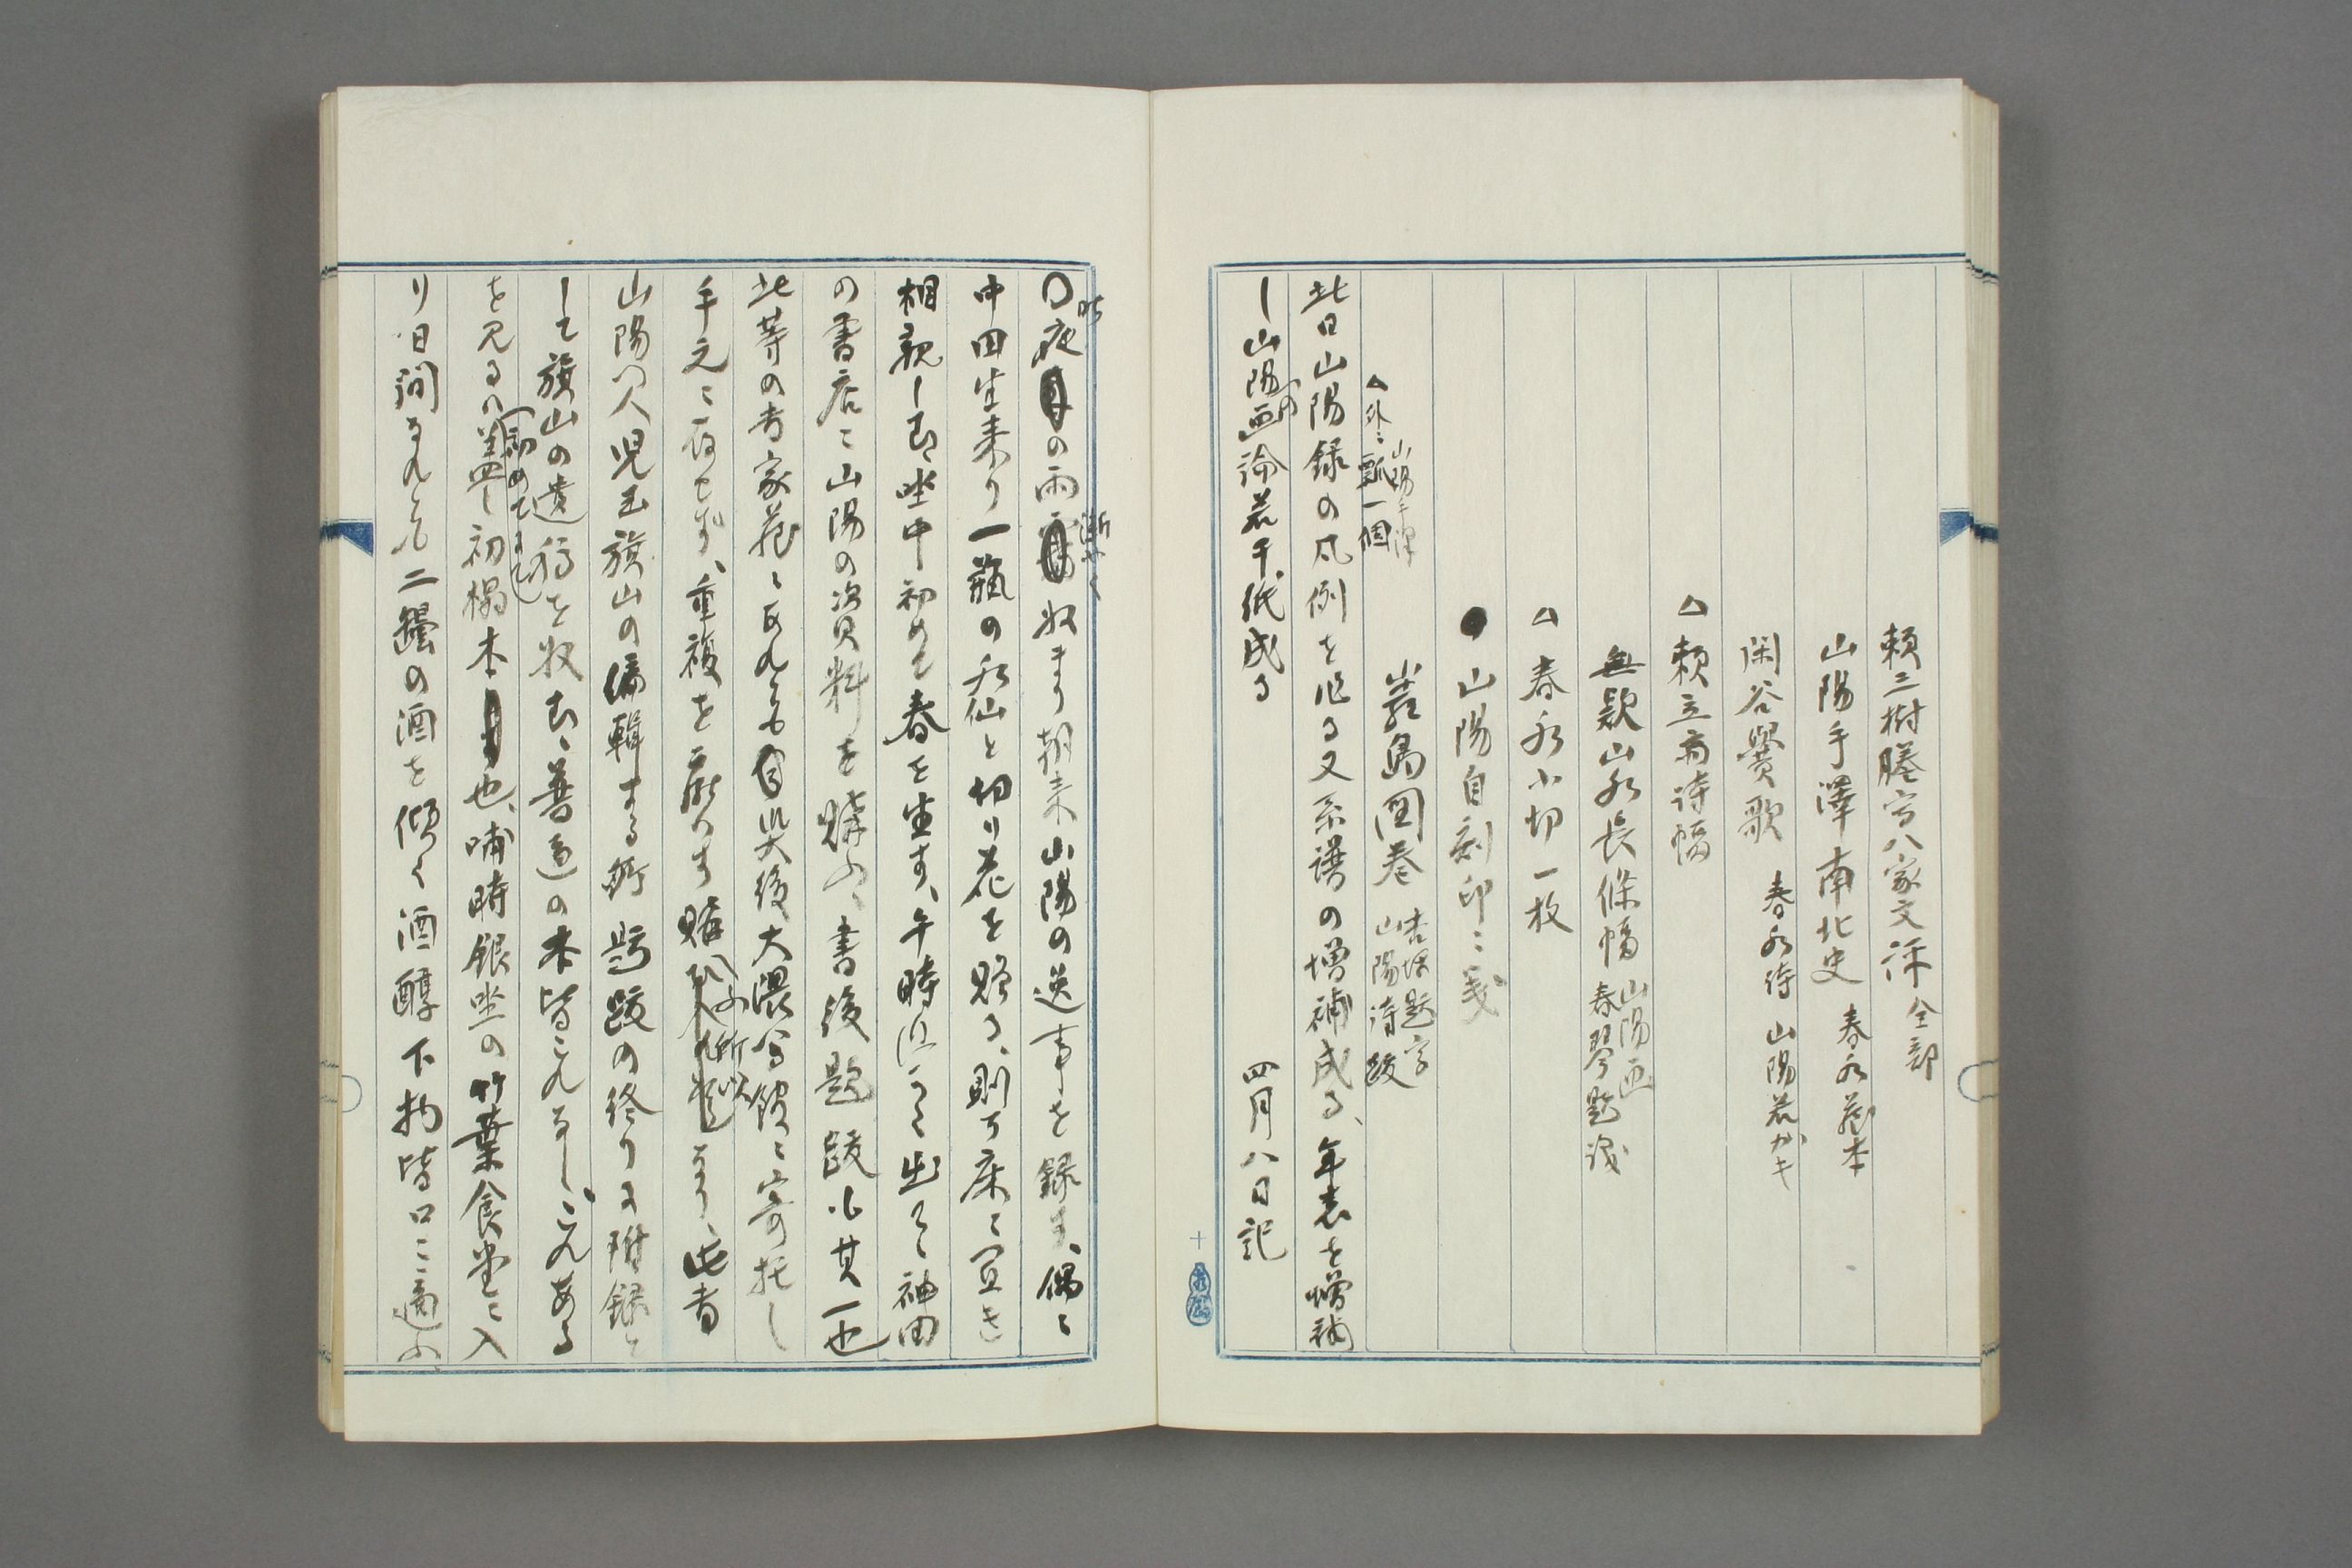 頼三樹謄写八家文評 全部
山陽手澤南北史 春水旧蔵本
閑谷黌歌 春水詩 山陽若カキ
△頼立斎詩幅
無款山水長條幅 山陽画 春琴題識
△春水小切一枚
●山陽自刻印二 
嚴島図巻 杏坪題字 山陽詩跋
△外ニ瓢一個 山陽手澤
此日山陽録の凡例を作る又系譜の増補成る、年表を増補
し山陽の画論若干紙成る 四月八日記
〇昨夜の雨 収まり朝来山陽の逸事を録す、偶ニ
中田生来り一瓶の水仙と切り花を贈る、則ち床ニ置き
相親し む坐中初めて春を生す、午時 出て神田
の書店ニ山陽の資料を購ふ、書後題跋も其一也
此等の書家蔵ニあれども災後大隈 館ニ寄托し
手元ニ存せず、重複を厭はず購ふ所以なり、此書
山陽門人児玉旗山の編輯する所題跋の終りに附録と
して旗山の遺稿を収む、普通の本皆これなし、これある
を見るハ 初めて 初榻本也、哺時銀坐の竹葉食堂ニ入
り日間なれども二罎の酒を傾く酒醇下物皆口ニ適ふ